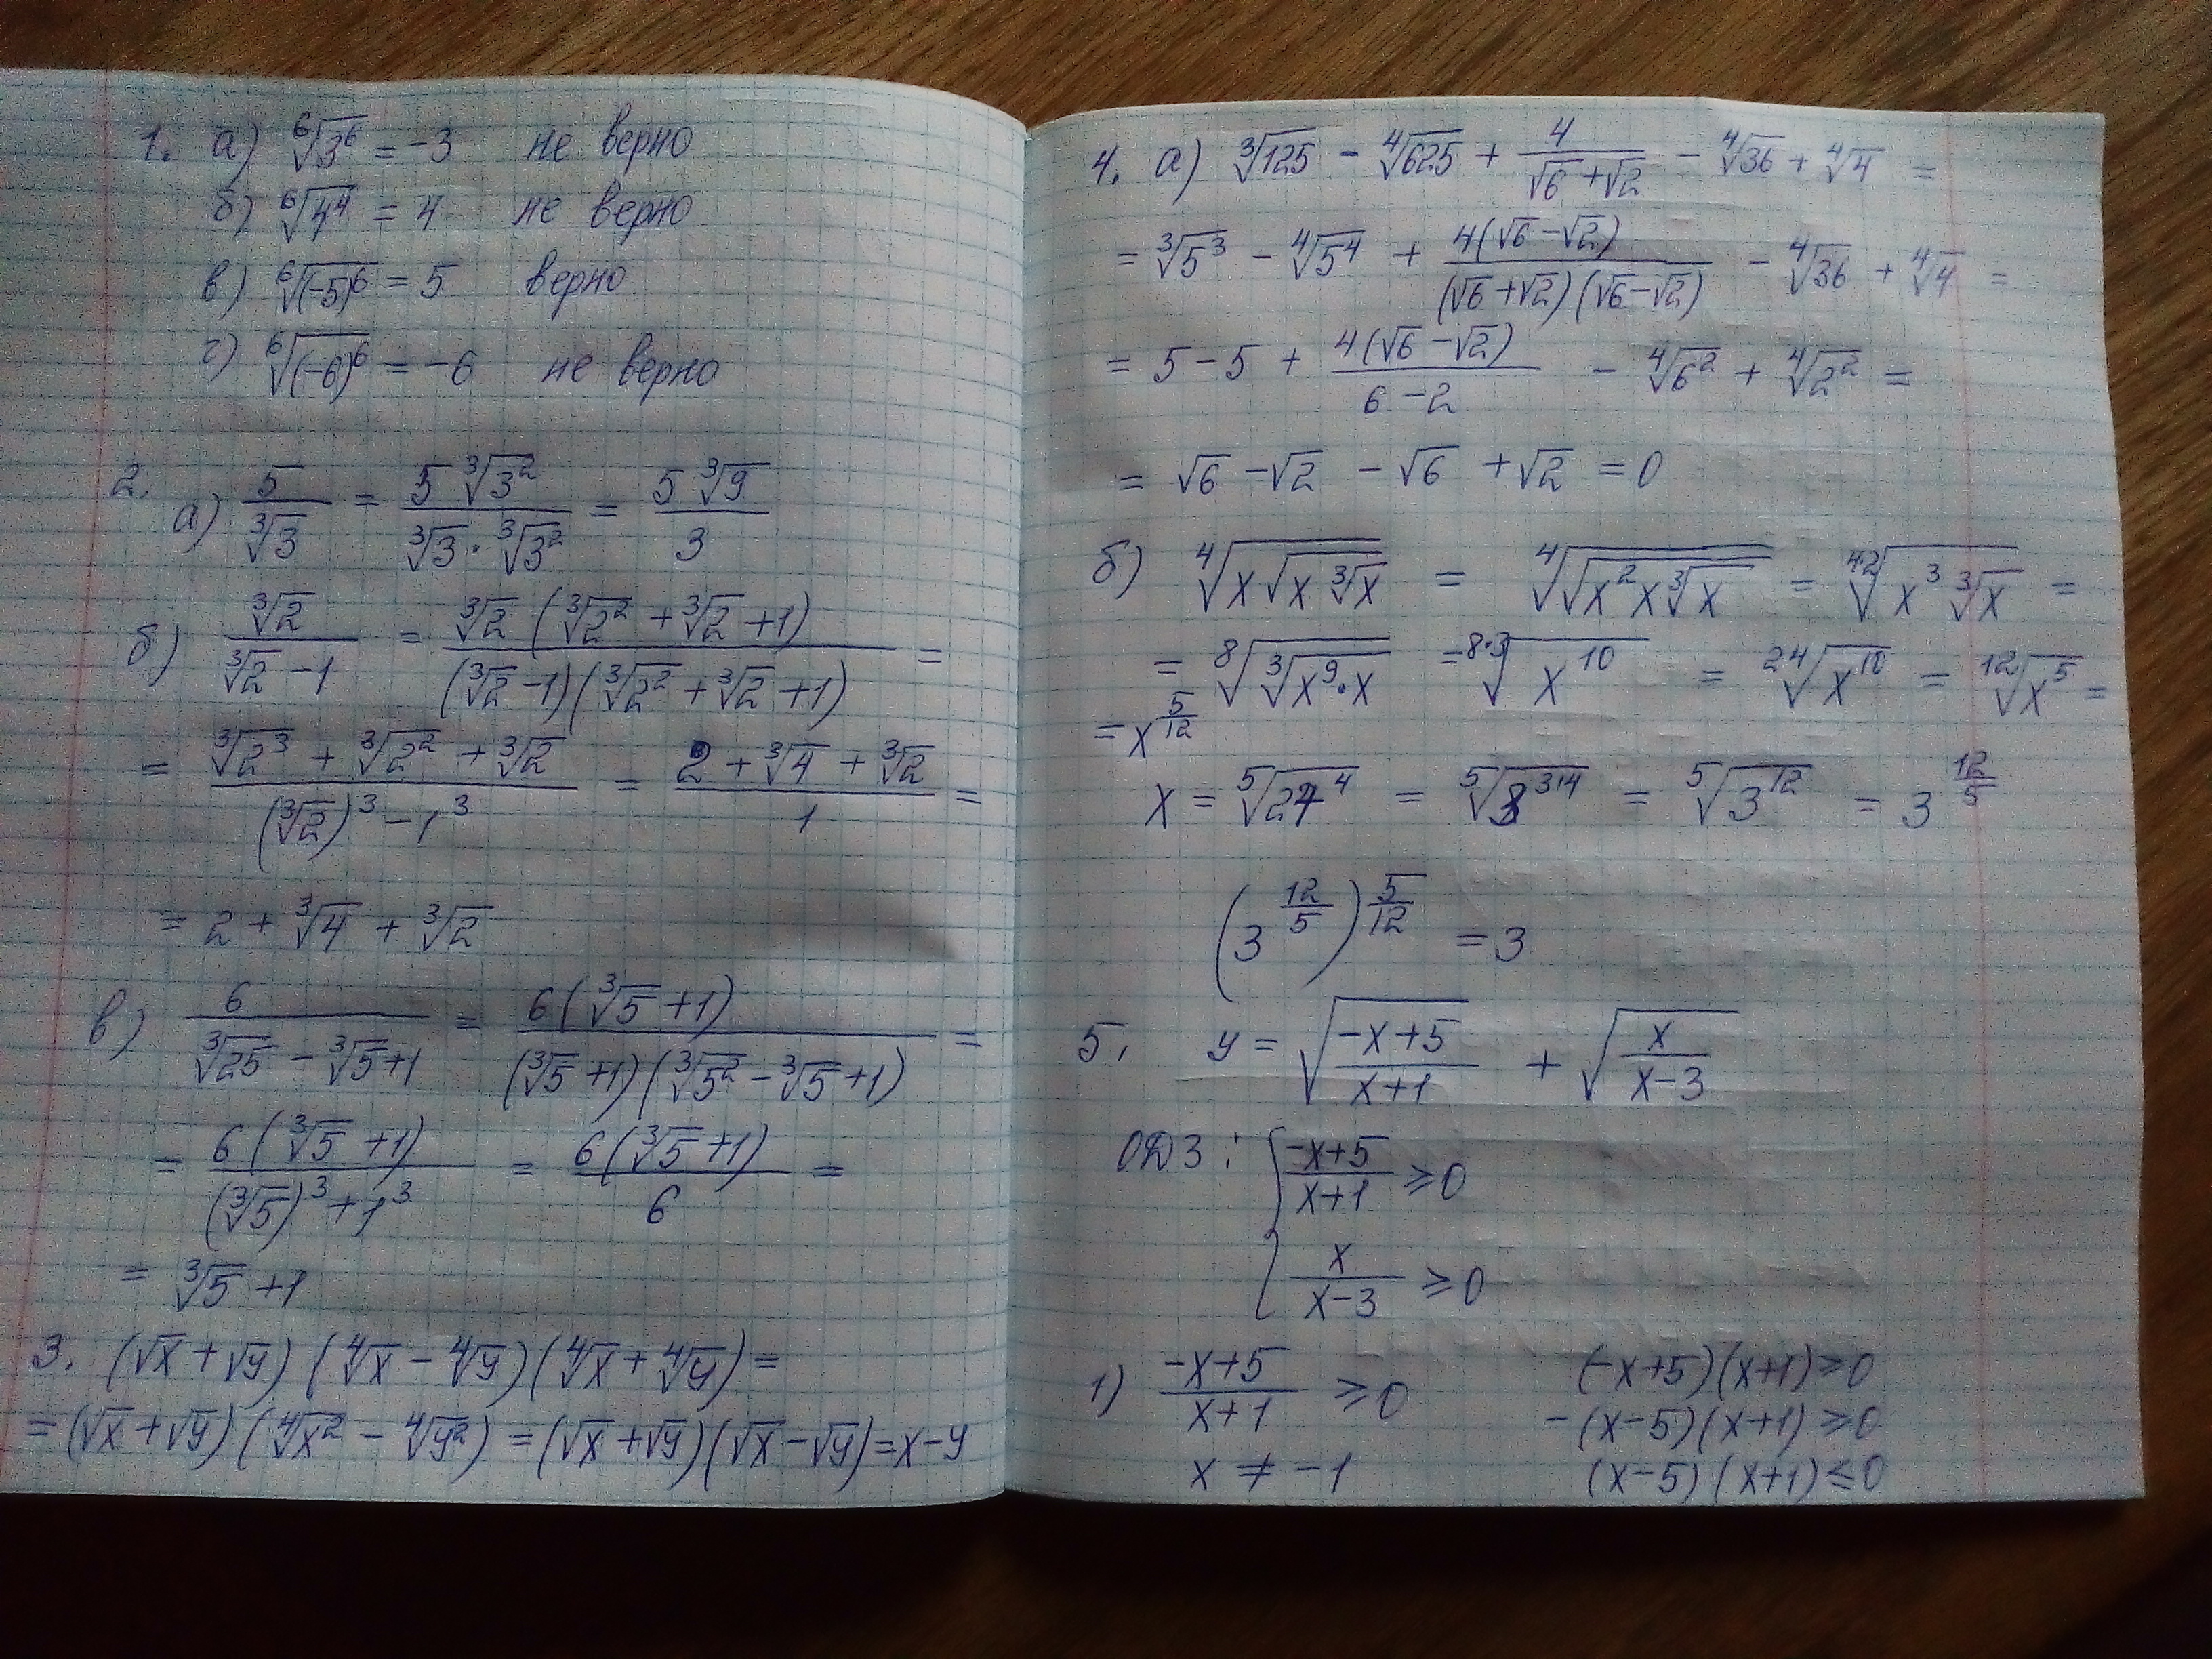 1. а) ⁶√3⁶ = -3 не верно
б) ⁶√4⁴ = 4 не верно
в) ⁶√(-5)⁶ = 5 верно
г) ⁶√(-6)⁶ = -6 не верно
2. а) 5/∛3 = 5∛3²/(∛3 · ∛3²) = 5∛9/3
б) ∛2/(∛2 - 1) = ∛2 (∛2² + ∛2 + 1)/((∛2 - 1)(∛2² + ∛2 + 1)) =
= (∛2³ + ∛2² + ∛2)/((∛2)³ - 1³) = (2 + ∛4 + ∛2)/1 =
= 2 + ∛4 + ∛2
в) 6/(∛25 - ∛5 + 1) = 6(∛5 + 1)/((∛5 + 1)(∛5² - ∛5 + 1)) =
= 6(∛5 + 1)/((∛5)³ + 1³) = 6(∛5 + 1)/6 =
= ∛5 + 1
3. (√x + √y)(∜x - ∜y)(∜x + ∜y) =
= (√x + √y)(∜x² - ∜y²) = (√x + √y)(√x - √y) = x - y
4. а) ∛125 - ∜625 + 4/(√6 + √2) - ∜36 + ∜4 =
= ∛5³ - ∜5⁴ + 4(√6 - √2)/((√6 + √2)(√6 - √2)) - ∜36 + ∜4 =
= 5 - 5 + 4(√6 - √2)/(6 - 2) - ∜6² + ∜2² =
= √6 - √2 - √6 + √2 = 0
б) ∜(x√(x∛x)) = ∜(√(x²x∛x)) = ⁴·²√(x³ ∛x) =
= ⁸√(∛(x⁹·x)) = ⁸·³√x¹⁰ = ²⁴√x¹⁰ = ¹²√x⁵ =
= x^(5/12)
x = ⁵√27⁴ = ⁵√3^(3·4) = ⁵√3¹² = 3^(12/5)
(3^(12/5))^(5/12) = 3
5. y = √((-x+5)/(x+1)) + √(x/(x-3))
ОДЗ: { (-x+5)/(x+1) ⩾ 0
{ x/(x-3) ⩾ 0
1) (-x+5)/(x+1) ⩾ 0 (-x+5)(x+1) ⩾ 0
-(x-5)(x+1) ⩾ 0
x ≠ -1 (x-5)(x+1) ⩽ 0